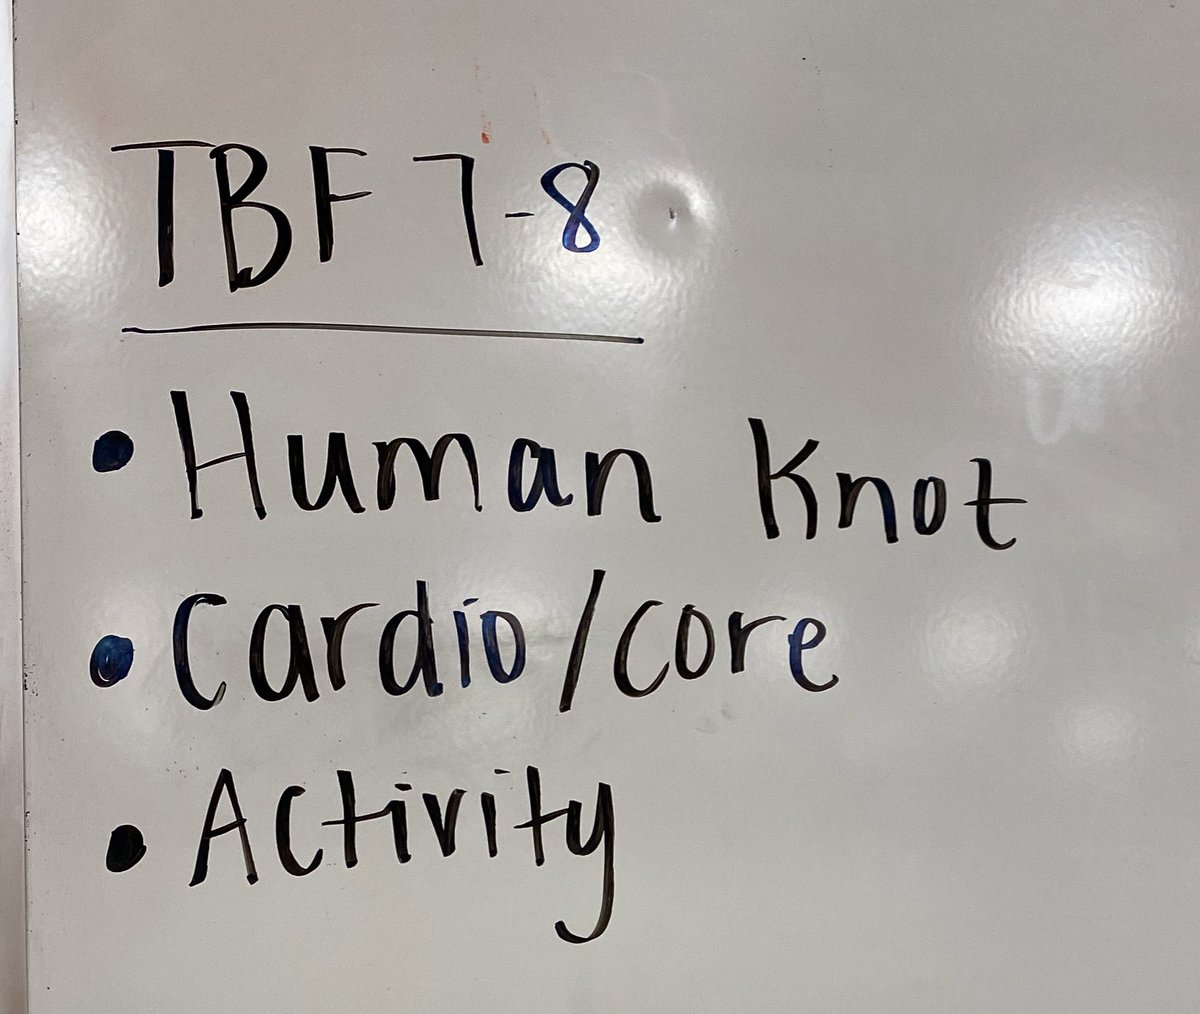 TBF 7-8
• Human Knot
• Cardio/core
• Activity